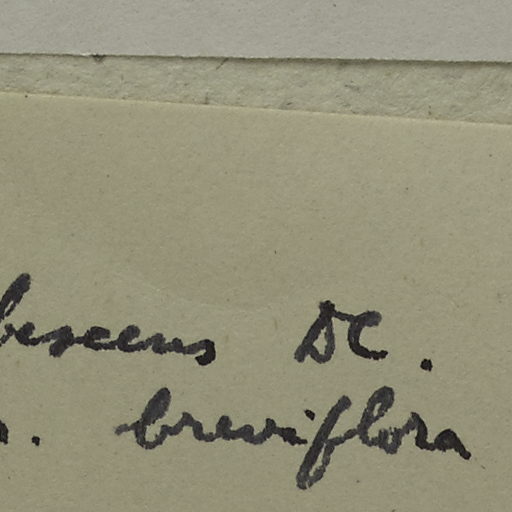 bescens DC.
r. breviflora